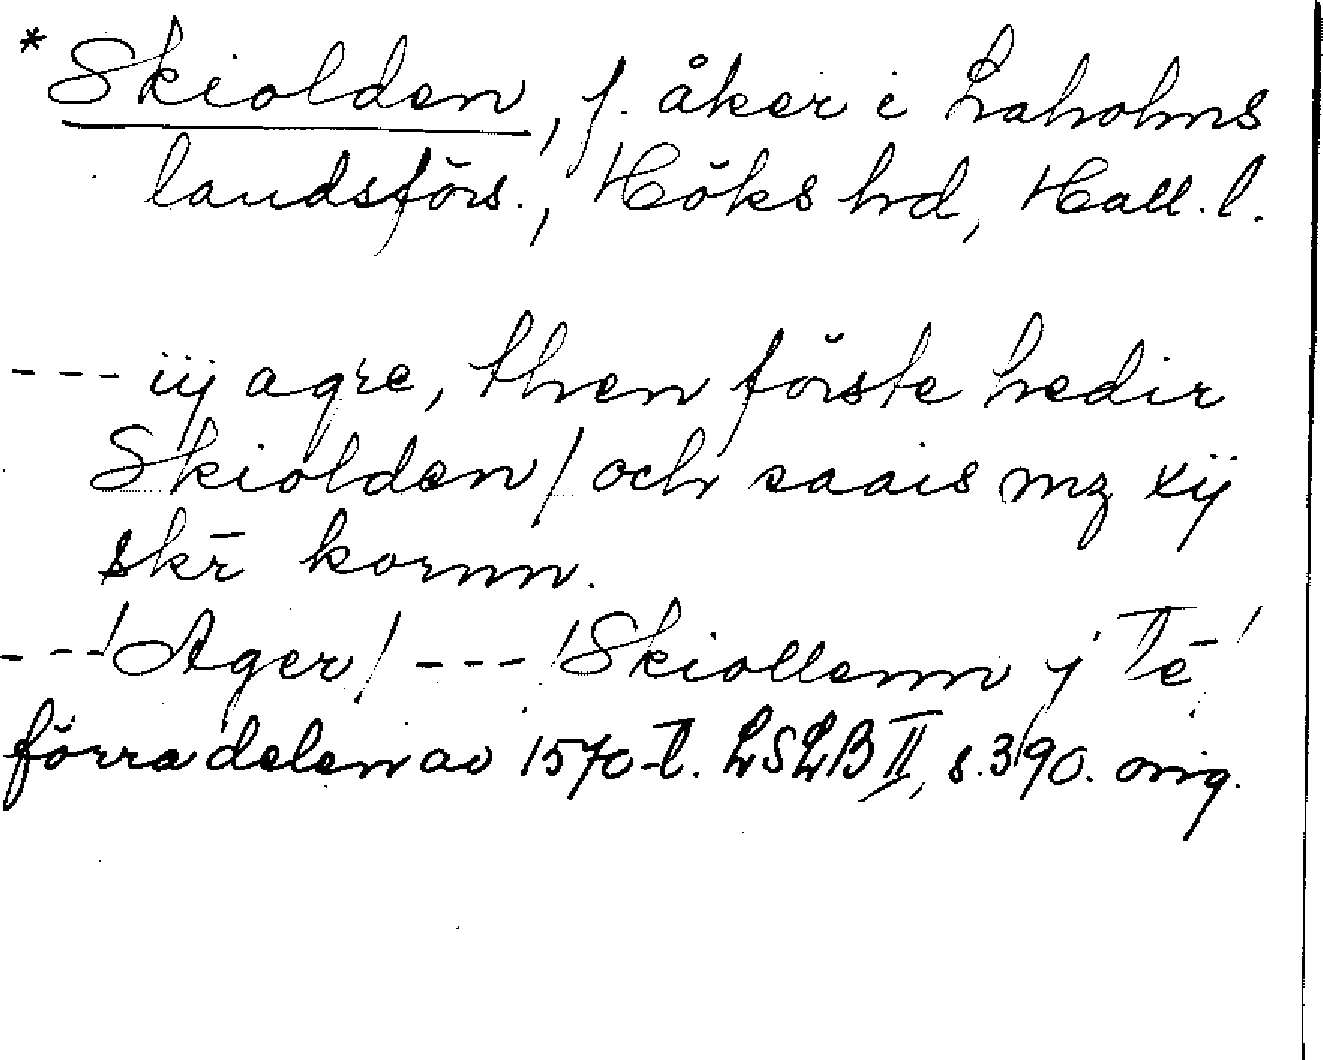 * Skiolden, f. åker i Laholms
landsförs., Höks hd, Hall. l.
--- iij agre, then förste hedir
Skiolden / och saais mz xij
skr̄ kornn.
---/Ager/ --- /Skiollenn j Tē/
förra delen av 1570-t. LSLB II, s. 390. orig.